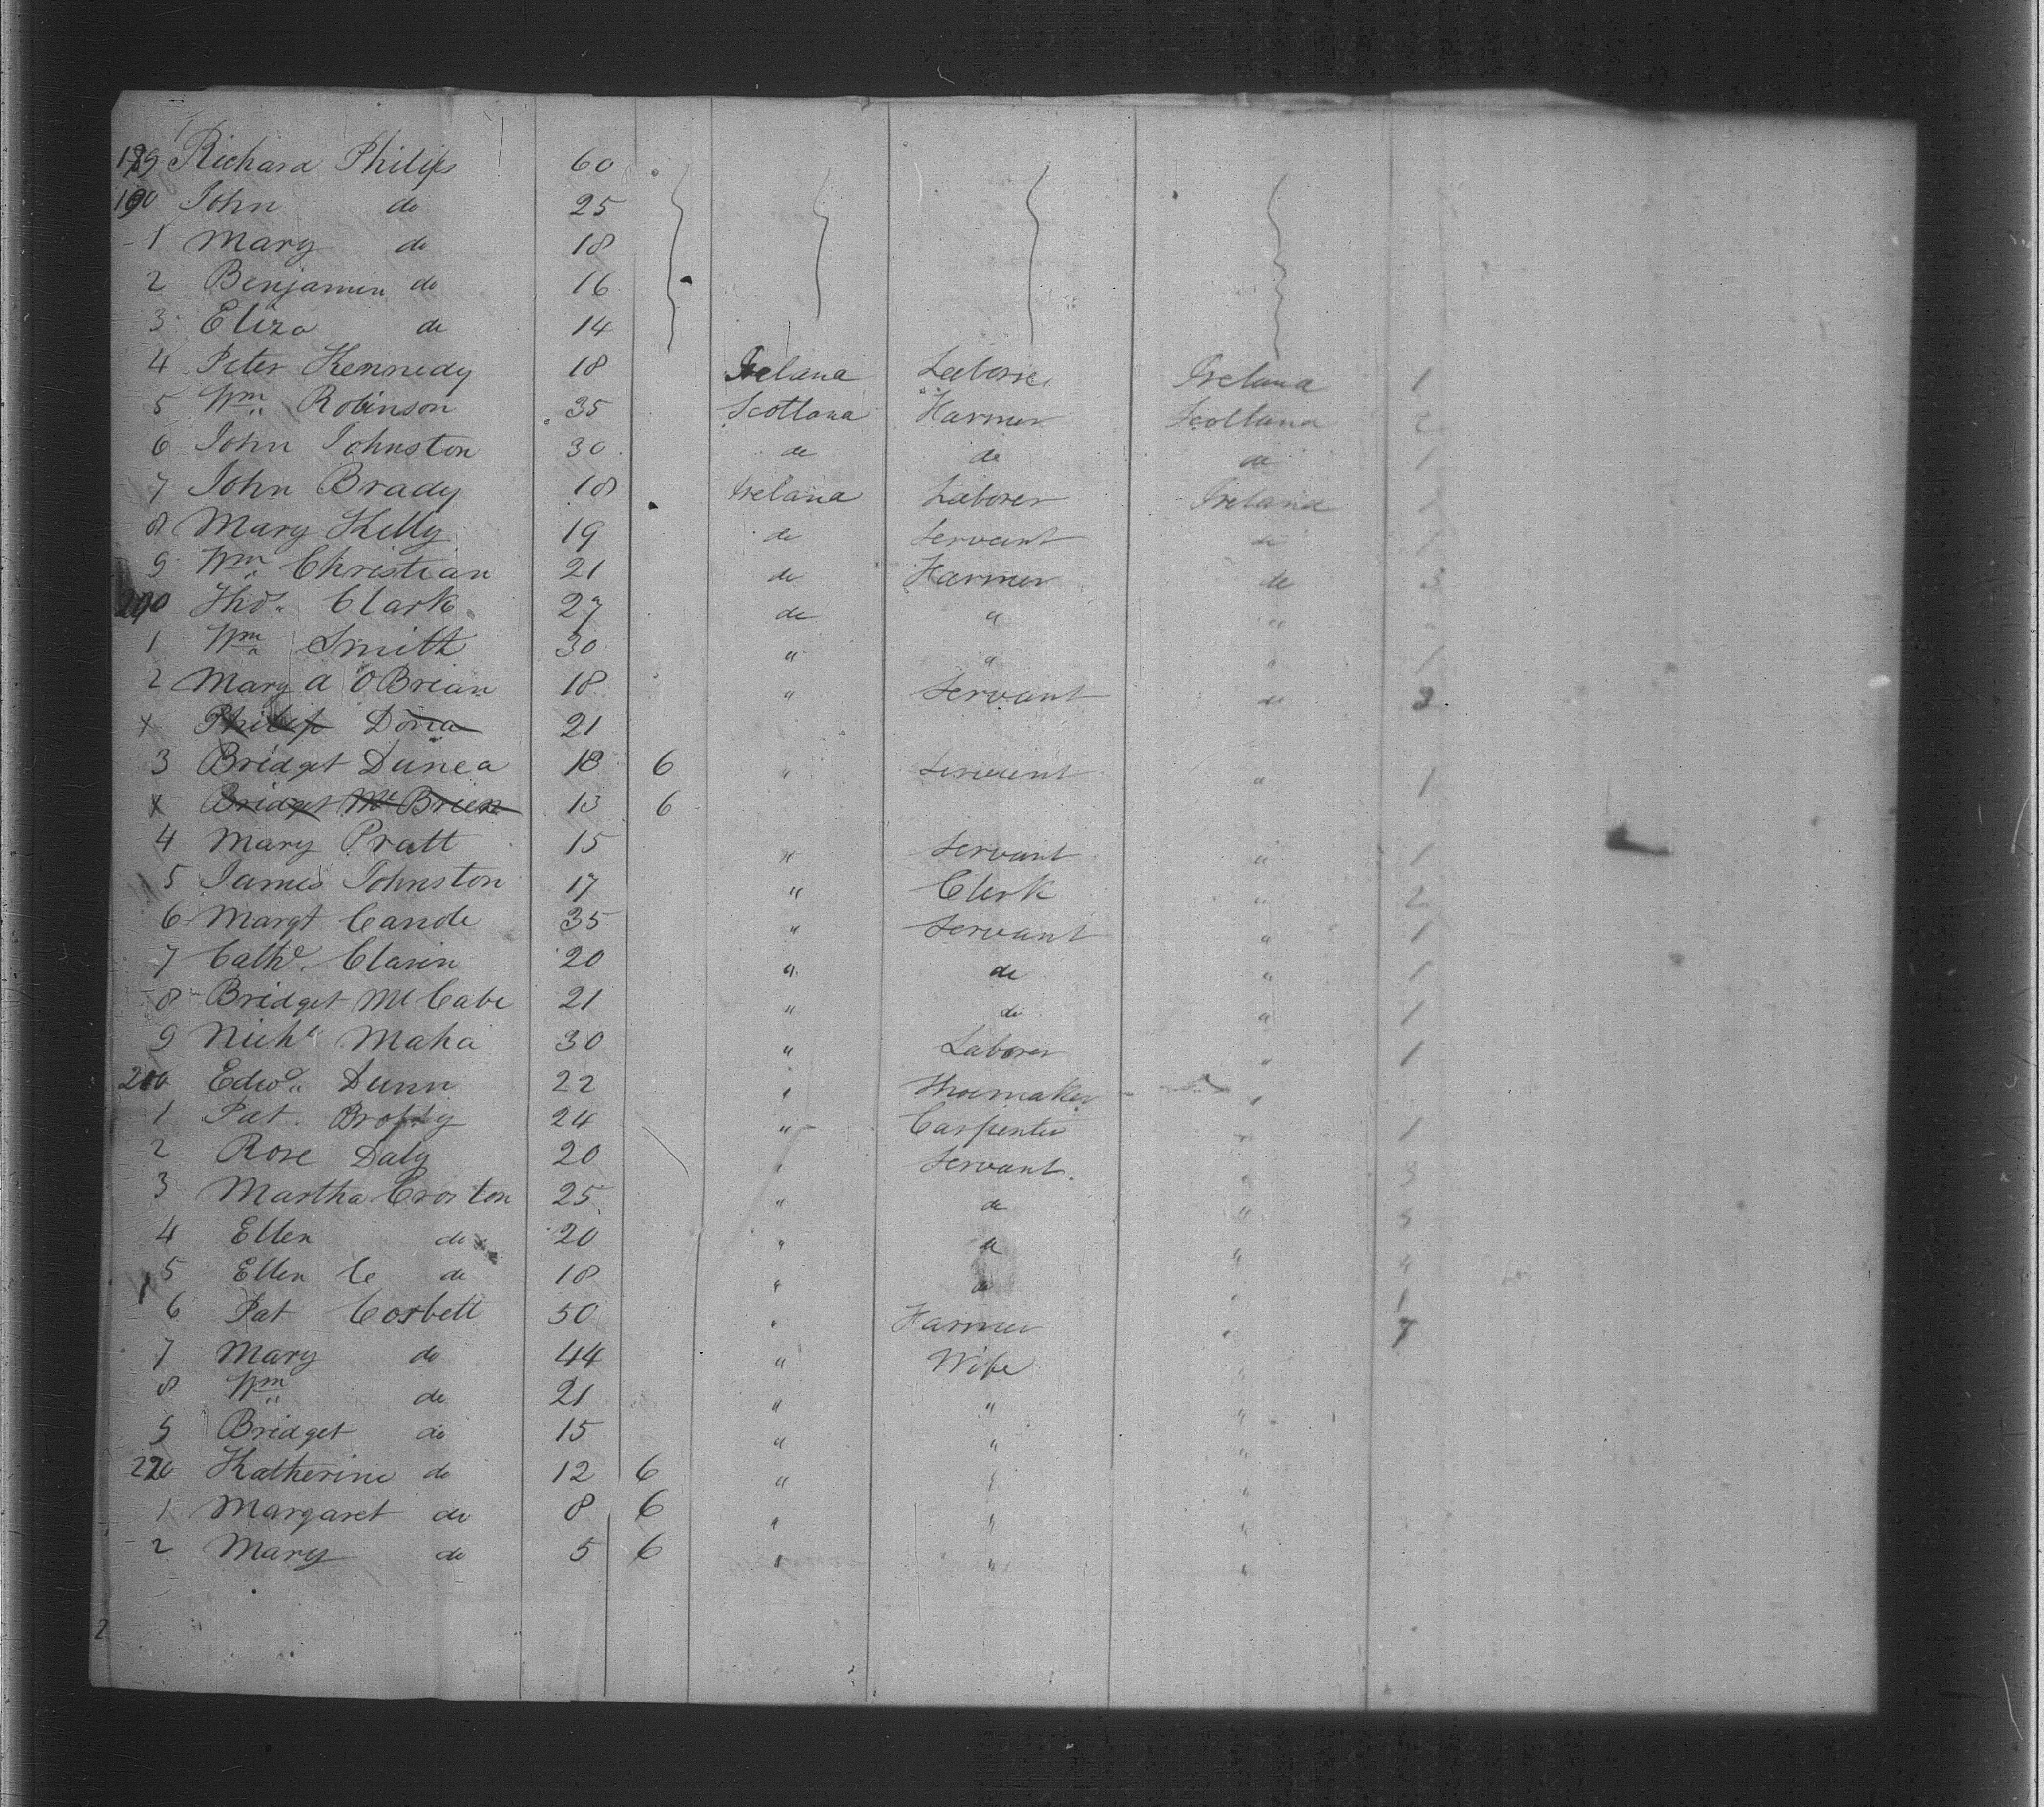 189 Richard Philips 60
190 John do 25
1 Mary do 18
2 Benjamin do 16
3 Eliza do 14
4 Peter Kennedy 18 Ireland Laborer Ireland 1
5 Wm Robinson 35 Scotland Farmer Scotland 2
6 John Johnston 30 do do do 1
7 John Brady 18 Ireland Laborer Ireland 1
8 Mary Kelly 19 do Servant do 1
9 Wm Christian 21 do Farmer do 3
200 Thos. Clark 27 do " " "
1 Wm Smith 30 " " " 1
2 Mary A OBrian 18 " Servant do 3
x Philip Dona 21
3 Bridget Dunea 18 6 " Servant " 1
x Bridget McBrien 13 6
4 Mary Pratt 15 " Servant " 1
5 James Johnston 17 " Clerk " 2
6 Margt Cande 35 " Servant " 1
7 Cathe. Clavin 20 " do " 1
8 Bridget McCabe 21 " do " 1
9 Nichs Maha 30 " Laborer " 1
210 Edwd. Dunn 22 " Shoemaker "
1 Pat. Brophy 24 " Carpenter " 1
2 Rose Daly 20 " Servant. " 3
3 Martha Croston 25 " do "
4 Ellen do 20 " do " "
5 Ellen C do 18 " do " 1
6 Pat Corbett 50 " Farmer " 7
7 Mary do 44 " Wife "
8 Wm do 21 " " "
9 Bridget do 15 " " "
220 Katherine do 12 6 " " "
1 Margaret do 8 6 " " "
2 Mary do 5 6 " " "